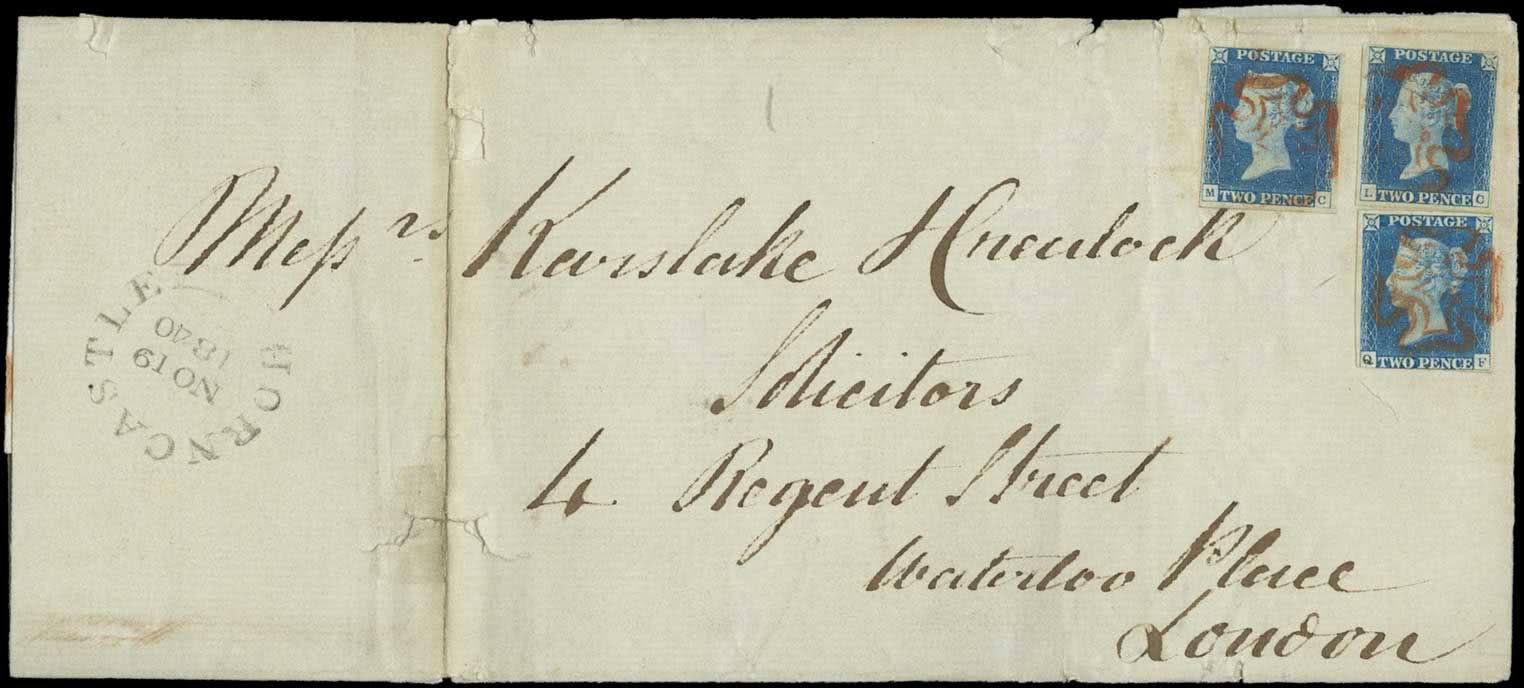 POSTAGE
M C
TWO PENCE
POSTAGE
L C
TWO PENCE
POSTAGE
Q F
TWO PENCE
Messrs Kerslake &
Solicitors
4 Regent Street
Waterloo Place
London
HORNCASTLE
NO 19
1840